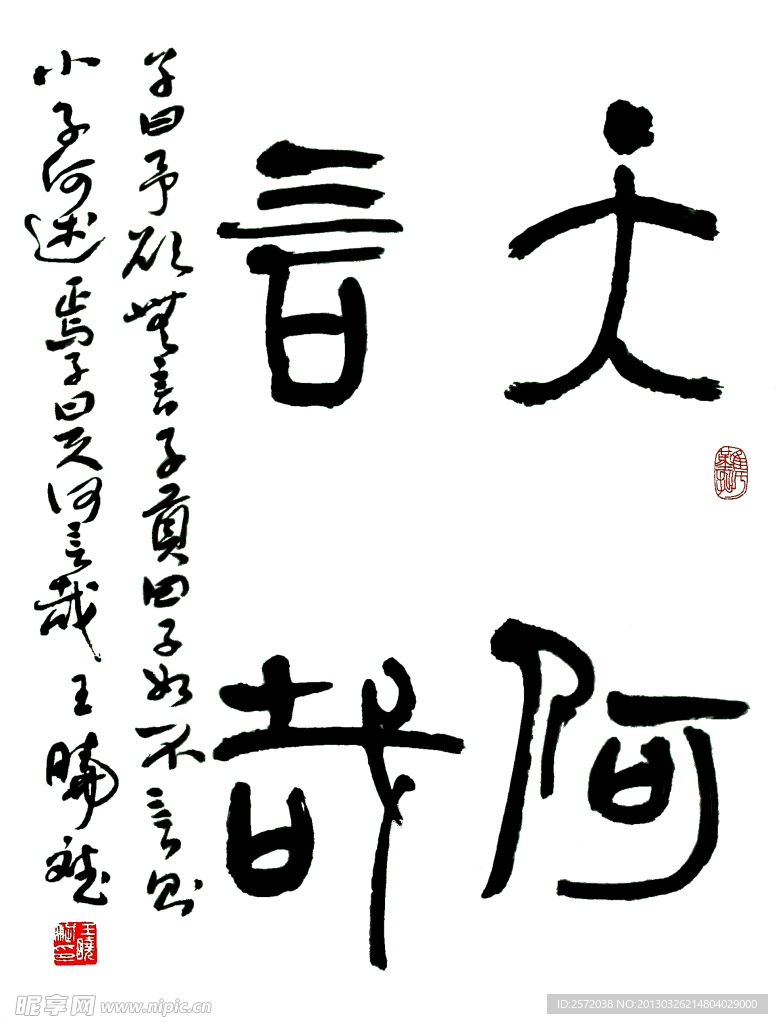 天何
言哉
子曰予欲無言子貢曰子如不言則
小子何述焉子曰天何言哉 王曉斌
昵享网 www.nipic.cn
ID:2572038 NO:20130326214804029000